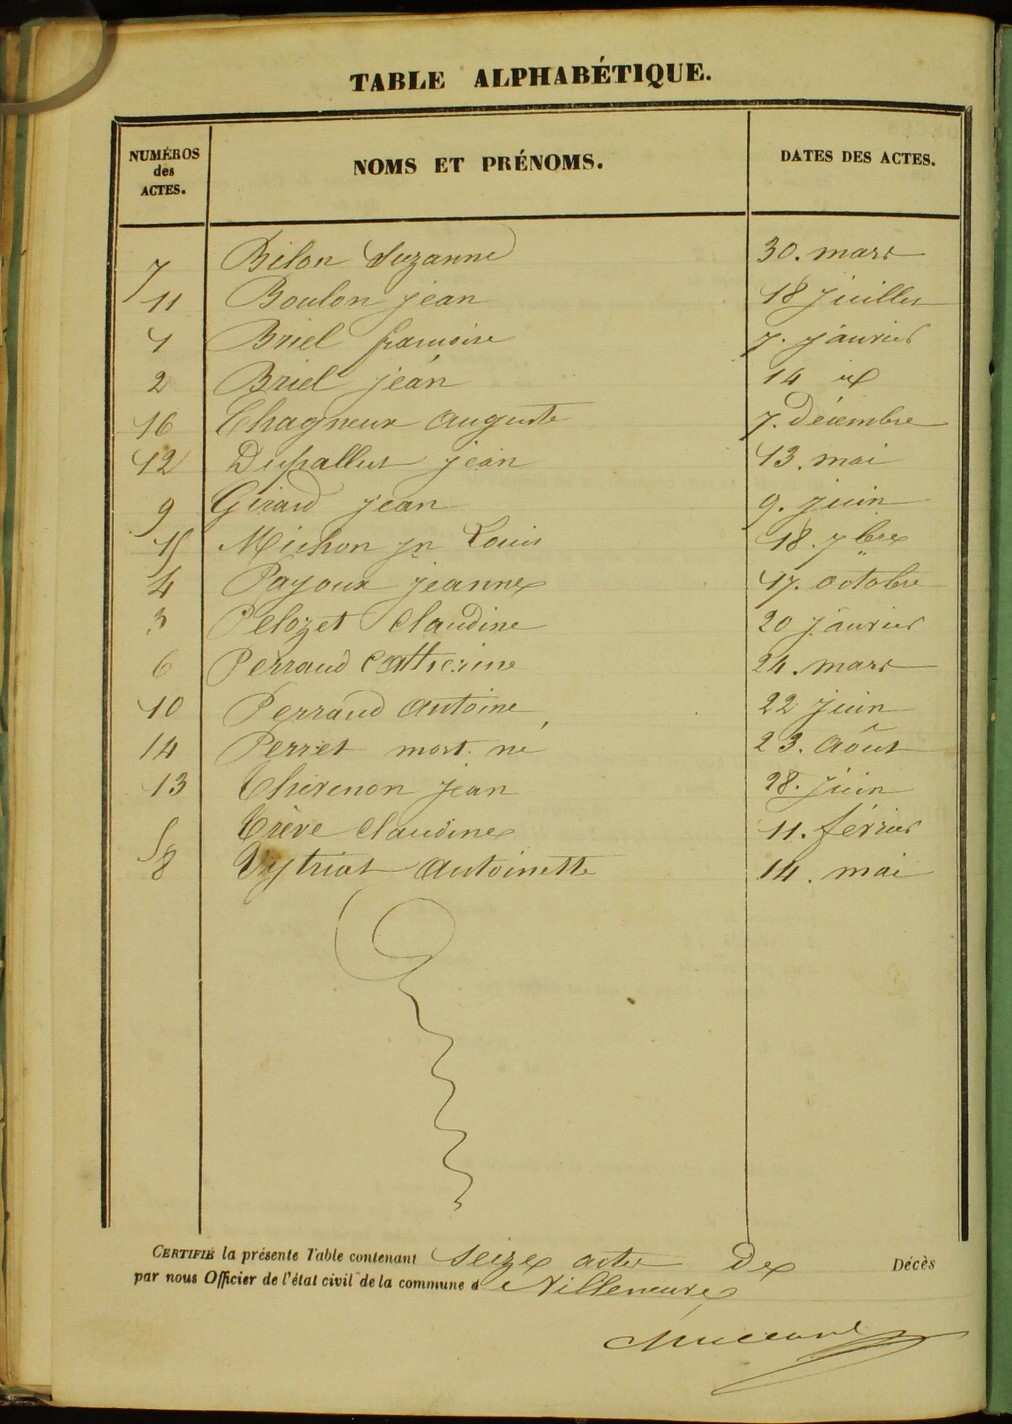 TABLE ALPHABÉTIQUE.
NUMÉROS des ACTES. NOMS ET PRÉNOMS. DATES DES ACTES.
7 Bilon Suzanne 30. mars
11 Boulon jean 18 juillet
1 Briel francoise 7. janvier
2 Briel jean 14 id
16 Chagneux auguste 7. Décembre
12 Dupallut jean 13. mai
9 Girard jean 9. juin
15 Michon jn Louis 18. 7bre
4 Payoux jeanne 17. octobre
3 Pelozet Claudine 20 janvier
6 Perraud Catherine 24. mars
10 Perraud antoine 22 juin
14 Perret mort. né 23. Août
13 Thévenon jean 28. juin
5 Trève Claudine 11. février
8 Vytriat Antoinette 14. mai
CERTIFIÉ la présente Table contenant seize actes De Décès
par nous Officier de l'état civil de la commune de Villeneuve